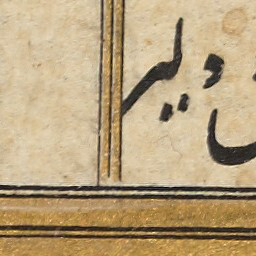 دلیر